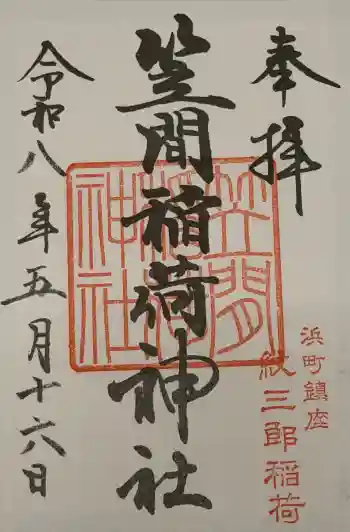 奉拝
浜町鎮座
紋三郎稲荷
笠間稲荷神社
笠間稲荷神社
令和八年五月十六日